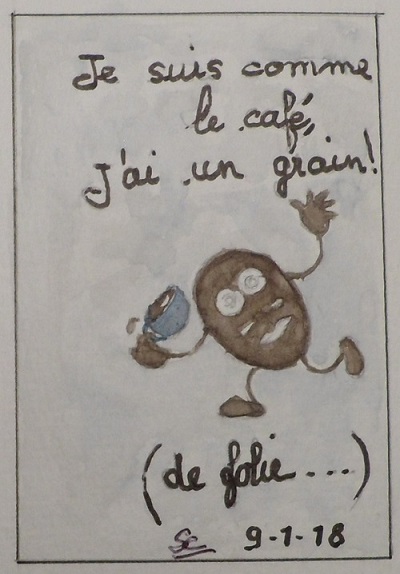 Je suis comme
le café,
j'ai un grain!
(de folie...)
SC 9-1-18